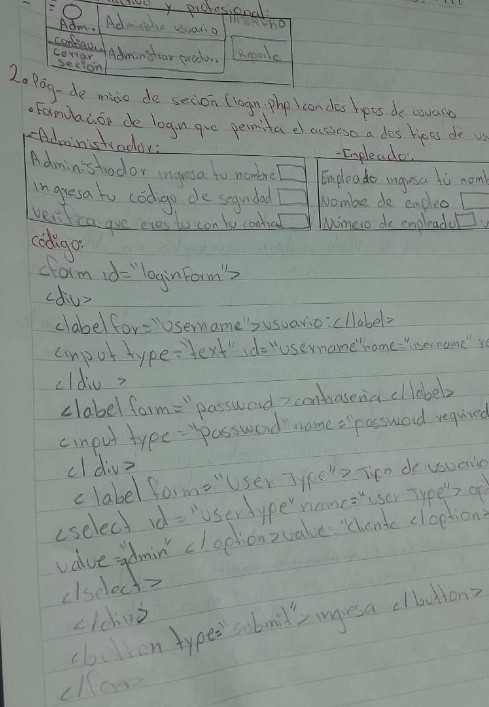 y profesional:
Adm. Administra usuario
cerrar
seción
Administrar produc.
2. Pág- de inicio de seción (login.php) con dos tipos de usuario
• Formulación de login que permita el acsseso a dos tipos de us
- Administrador:
Administrador ingresa tu nombre
ingresa tu código de seguridad
verifica que eres tu con tu contra
- Empleado:
Empleado ingresa tú nomb
Nombre de empleo
Número de empleado
código:
<form id="loginForm">
<div>
<label for="Username">usuario:</label>
<input type="text" id="username" name="username" re
</div>
<label form="password>contraseña</label>
<input type="password" name="password required
</div>
<label form="User Type">Tipo de usuario
<select id="usertype" name="user Type">op
value="admin" </option>value="cliente </option>
</select>
</div>
<button type="submit">ingresa </button>
</form>